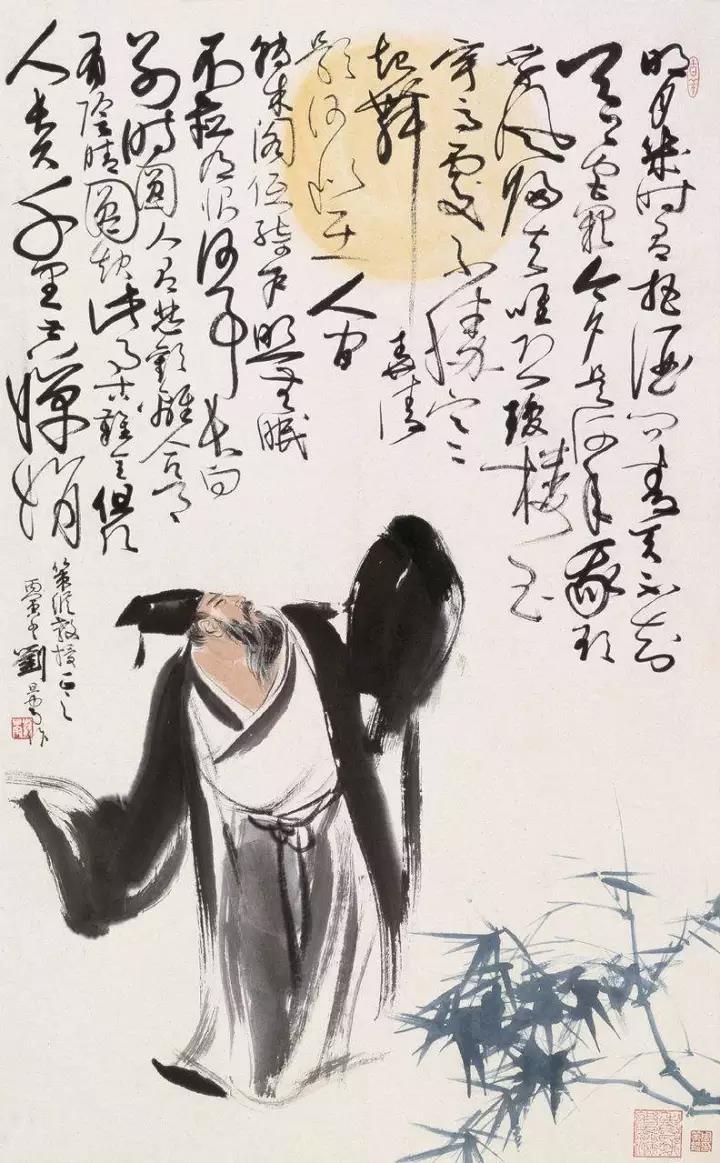 明月幾時有把酒問青天不知
天上宮闕今夕是何年我欲
乘風歸去唯恐瓊樓玉
宇高處不勝寒
起舞弄清
影何似在人間
轉朱閣低綺戶照無眠
不應有恨何事長向
別時圓人有悲歡離合月
有陰晴圓缺此事古難全但願
人長久千里共嬋娟
策縱教授正之
丙寅冬劉旦宅作